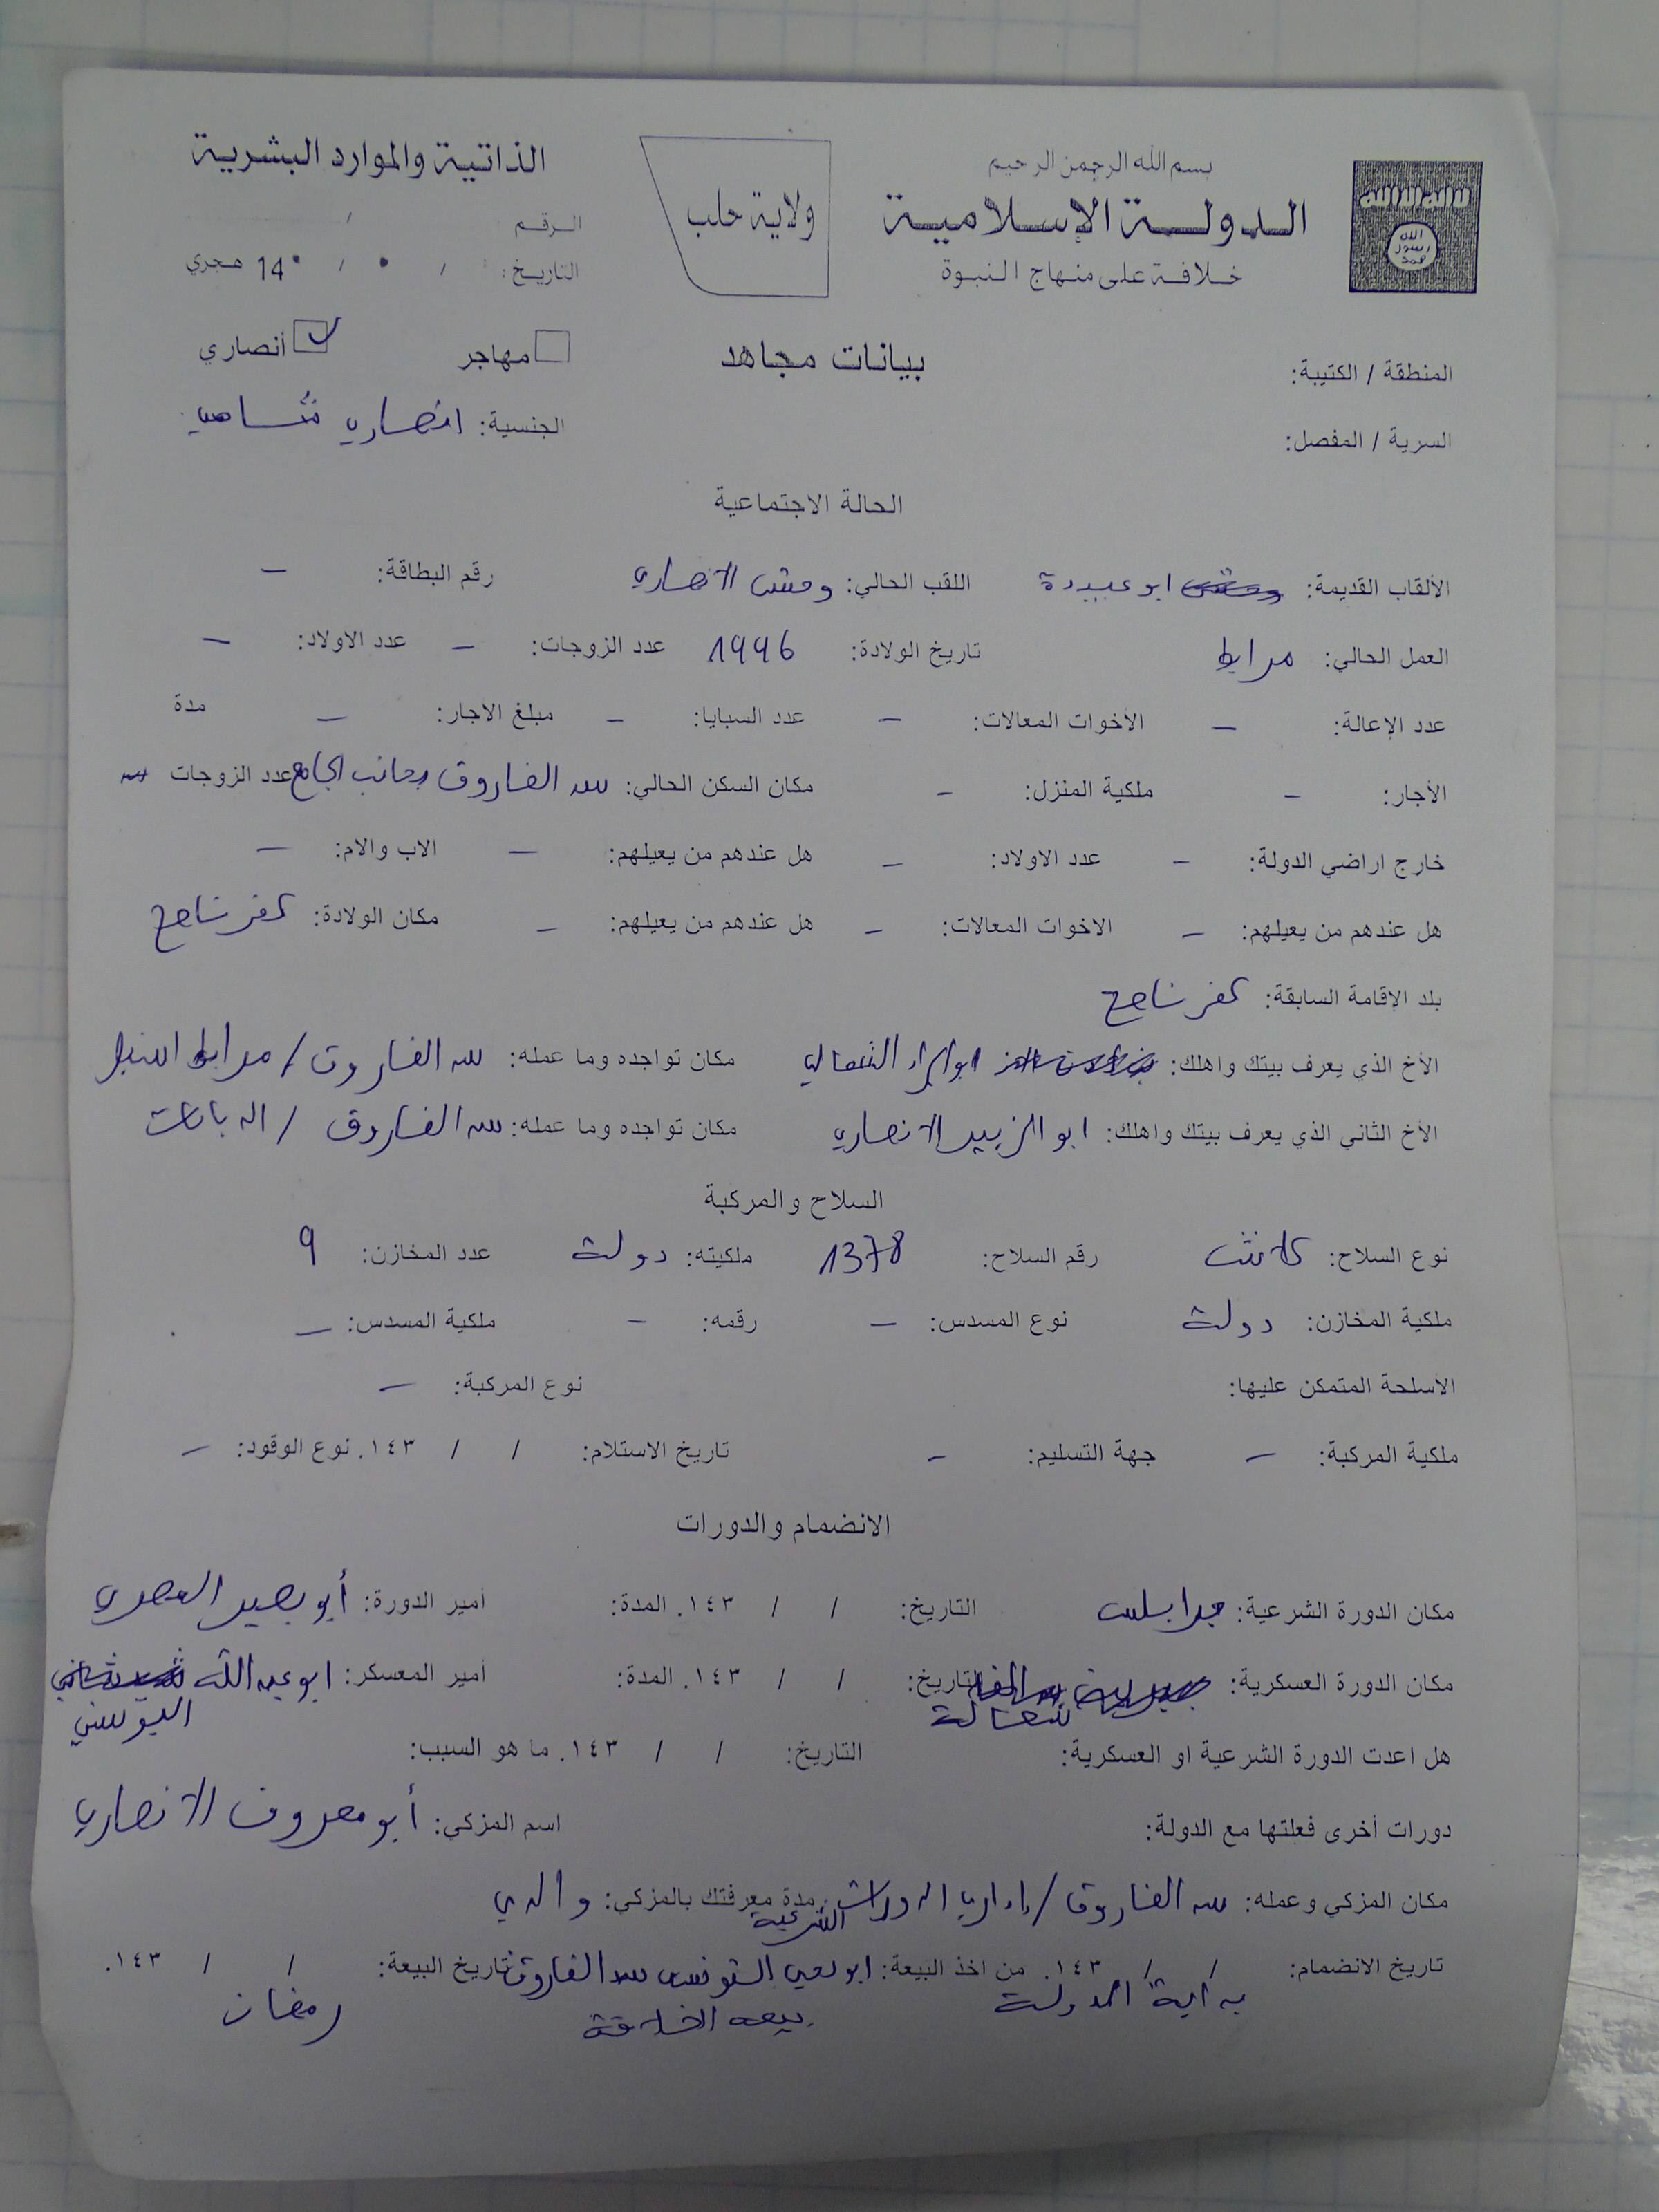 بسم الله الرحمن الرحيم
الدولة الإسلامية
خلافة على منهاج النبوة
ولاية حلب
الذاتية والموارد البشرية
الرقم /
التاريخ: / / 14 هجري
بيانات مجاهد
مهاجر أنصاري
المنطقة / الكتيبة:
السرية / المفصل: الجنسية: انصاري شامي
الحالة الاجتماعية
الألقاب القديمة: ابو عبيدة اللقب الحالي: الانصاري رقم البطاقة: –
العمل الحالي: مرابط تاريخ الولادة: 1996 عدد الزوجات: – عدد الاولاد: –
عدد الإعالة: – الأخوات المعالات: – عدد السبايا: – مبلغ الاجار: – مدة
الأجار: – ملكية المنزل: – مكان السكن الحالي: سد الفاروق بجانب الجامع عدد الزوجات –
خارج اراضي الدولة: – عدد الاولاد: – هل عندهم من يعيلهم: – الاب والام: –
هل عندهم من يعيلهم: – الاخوات المعالات: – هل عندهم من يعيلهم: – مكان الولادة: كفر ناصح
بلد الإقامة السابقة: كفر ناصح
الأخ الذي يعرف بيتك واهلك: ابو البراء الشمالي مكان تواجده وما عمله: سد الفاروق / مرابط
الأخ الثاني الذي يعرف بيتك واهلك: ابو الزبير الانصاري مكان تواجده وما عمله: سد الفاروق /
السلاح والمركبة
نوع السلاح: رقم السلاح: 1378 ملكيته: دولة عدد المخازن: 9
ملكية المخازن: دولة نوع المسدس: – رقمه: – ملكية المسدس: –
الأسلحة المتمكن عليها: نوع المركبة: –
ملكية المركبة: – جهة التسليم: – تاريخ الاستلام: / / ١٤٣. نوع الوقود: –
الانضمام والدورات
مكان الدورة الشرعية: جرابلس التاريخ: / / ١٤٣. المدة: أمير الدورة: أبو بصير المصري
مكان الدورة العسكرية: التاريخ: / / ١٤٣. المدة: أمير المعسكر: ابو عبد الله
هل اعدت الدورة الشرعية او العسكرية: التاريخ: / / ١٤٣. ما هو السبب:
دورات أخرى فعلتها مع الدولة: اسم المزكي: أبو معروف الانصاري
مكان المزكي وعمله: سد الفاروق / اداري الدورات الشرعية مدة معرفتك بالمزكي: والدي
تاريخ الانضمام: / / ١٤٣. من اخذ البيعة: ابو التونسي سد الفاروق تاريخ البيعة: / / ١٤٣.
بداية الدولة بيعه الخلافة رمضان